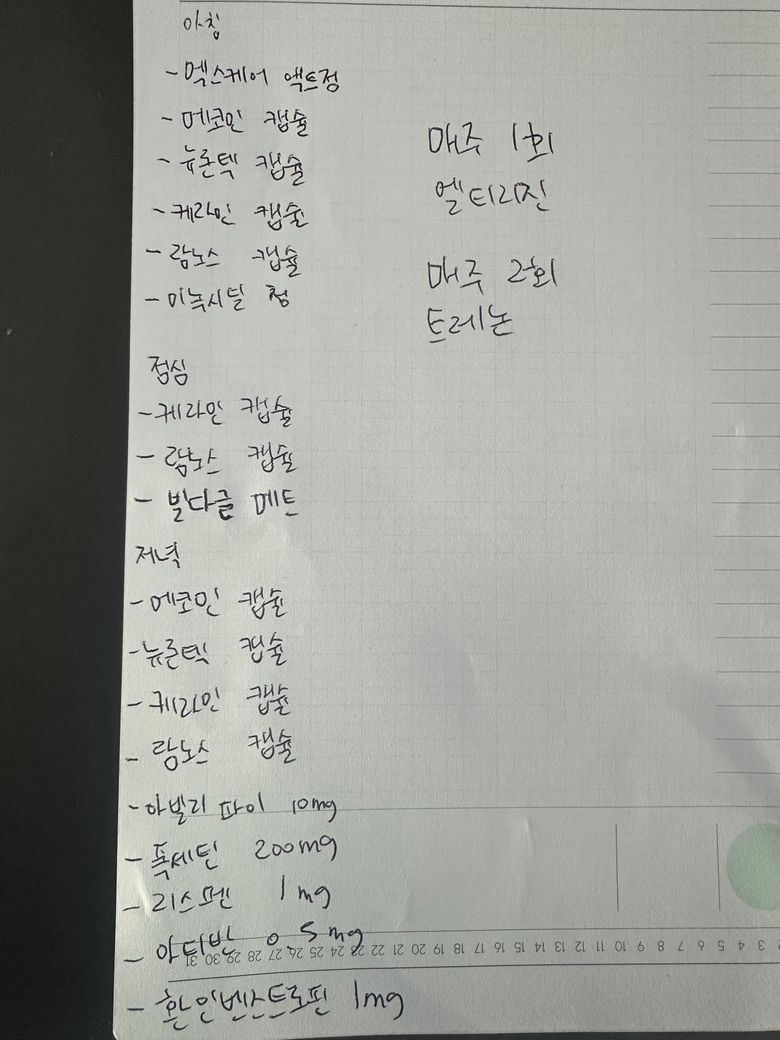 아침
- 멕스케어 액트정
- 메코민 캡슐
- 뉴론텍 캡슐
- 케라민 캡슐
- 람노스 캡슐
- 미녹시딜 정
점심
- 케라민 캡슐
- 람노스 캡슐
- 빌다글 메트
저녁
- 메코민 캡슐
- 뉴론텍 캡슐
- 케라민 캡슐
- 람노스 캡슐
- 아빌리파이 10mg
- 폭세틴 200mg
- 리스펜 1mg
- 아티반 0.5mg
- 환인벤즈트로핀 1mg
매주 1회
엘티리진
매주 2회
트레논
31 30 29 28 27 26 25 24 23 22 21 20 19 18 17 16 15 14 13 12 11 10 9 8 7 6 5 4 3 2